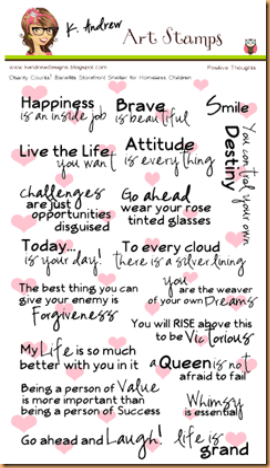 K. Andrew
Art Stamps
www.kandrewdesigns.blogspot.com
Positive Thoughts
Charity Counts! Benefits Storefront Shelter for Homeless Children
Happiness
is an inside job
Brave
is beautiful
Smile
Live the Life
you want
Attitude
is everything
You control your own
Destiny
challenges
are just
opportunities
disguised
Go ahead
wear your rose
tinted glasses
Today...
is your day!
To every cloud
there is a silver lining
The best thing you can
give your enemy is
Forgiveness
you
are the weaver
of your own Dreams
You will RISE above this
to be Victorious
My Life is so much
better with you in it
a Queen is not
afraid to fail
Being a person of Value
is more important than
being a person of Success
Whimsy
is essential
Go ahead and Laugh!
life is
grand